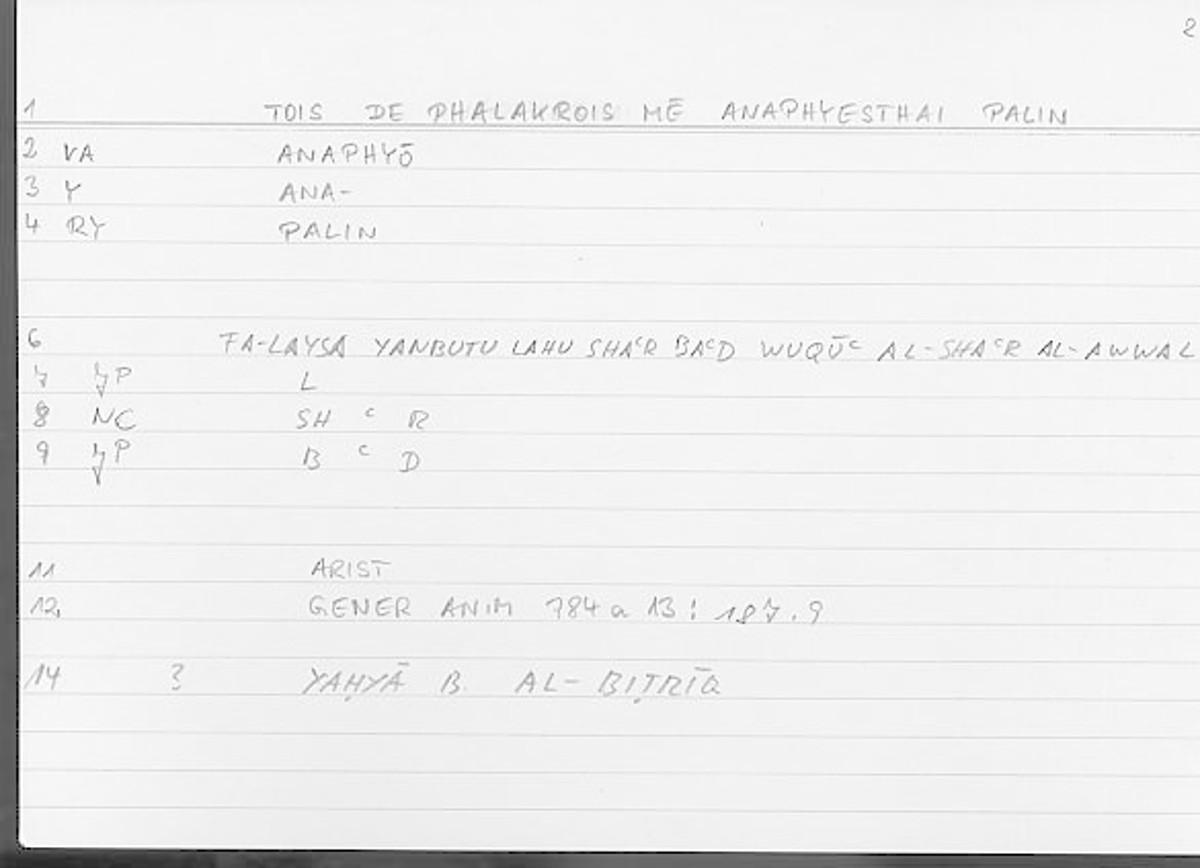 2
1 TOIS DE PHALAKROIS MĒ ANAPHYESTHAI PALIN
2 VA ANAPHYŌ
3 Y ANA-
4 RY PALIN
6 FA-LAYSA YANBUTU LAHU SHAᶜR BAᶜD WUQŪᶜ AL-SHAᶜR AL-AWWAL
7 P L
8 NC SH ᶜ R
9 P B ᶜ D
11 ARIST
12 GENER ANIM 784 a 13 : 187.9
14 3 YAḤYĀ B. AL-BIṬRĪQ